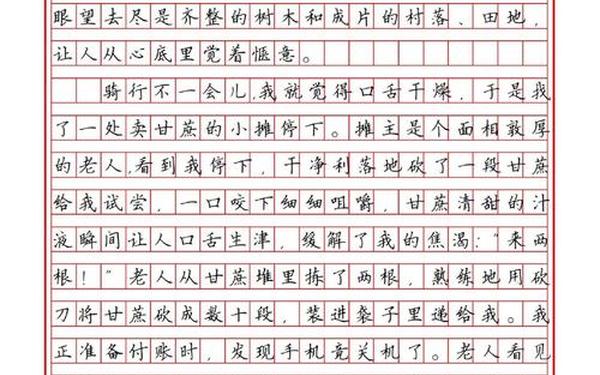 眼望去尽是齐整的树木和成片的村落、田地,
让人从心底里觉着惬意。
骑行不一会儿,我就觉得口舌干燥,于是我
了一处卖甘蔗的小摊停下。摊主是个面相敦厚
的老人,看到我停下,干净利落地砍了一段甘蔗
给我试尝,一口咬下细细咀嚼,甘蔗清甜的汁
液瞬间让人口舌生津,缓解了我的焦渴:“来两
根!”老人从甘蔗堆里拣了两根,熟练地用砍
刀将甘蔗砍成数十段,装进袋子里递给我。我
正准备付账时,发现手机竟关机了。老人看见